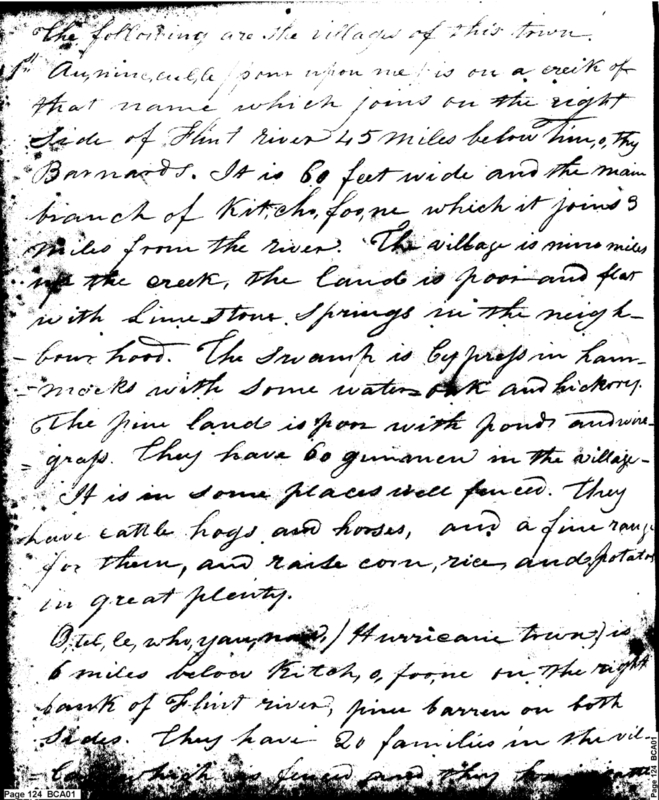 The following are the villages of this town.
1st Au,mine,cul,le (pour upon me) is on a creek of
that name which joins on the right
side of Flint river 45 miles below Tim,o,thy
Barnards. It is 60 feet wide and the main
branch of Kitcho,foo,ne which it joins 3
miles from the river. The village is nine miles
up the creek, the land is poor and flat
with limestone springs in the neigh-
-bour hood. The swamp is Cypress in ham-
-mocks with some water oak and hickory.
The pine land is poor with ponds and wire-
= grass. They have 60 gunmen in the village-
It is in some places well fenced. They
have cattle hogs and horses, and a fine range
for them, and raise corn, rice, and potatoes
in great plenty.
O,tel,le,who,yau,nau, (Hurricane town) is
6 miles below Kitch,o,foo,ne on the right
bank of Flint river, pine barren on both
sides. They have 20 families in the vil-
which is fenced and they have
Page 124 BCA01
Page 124 BCA01